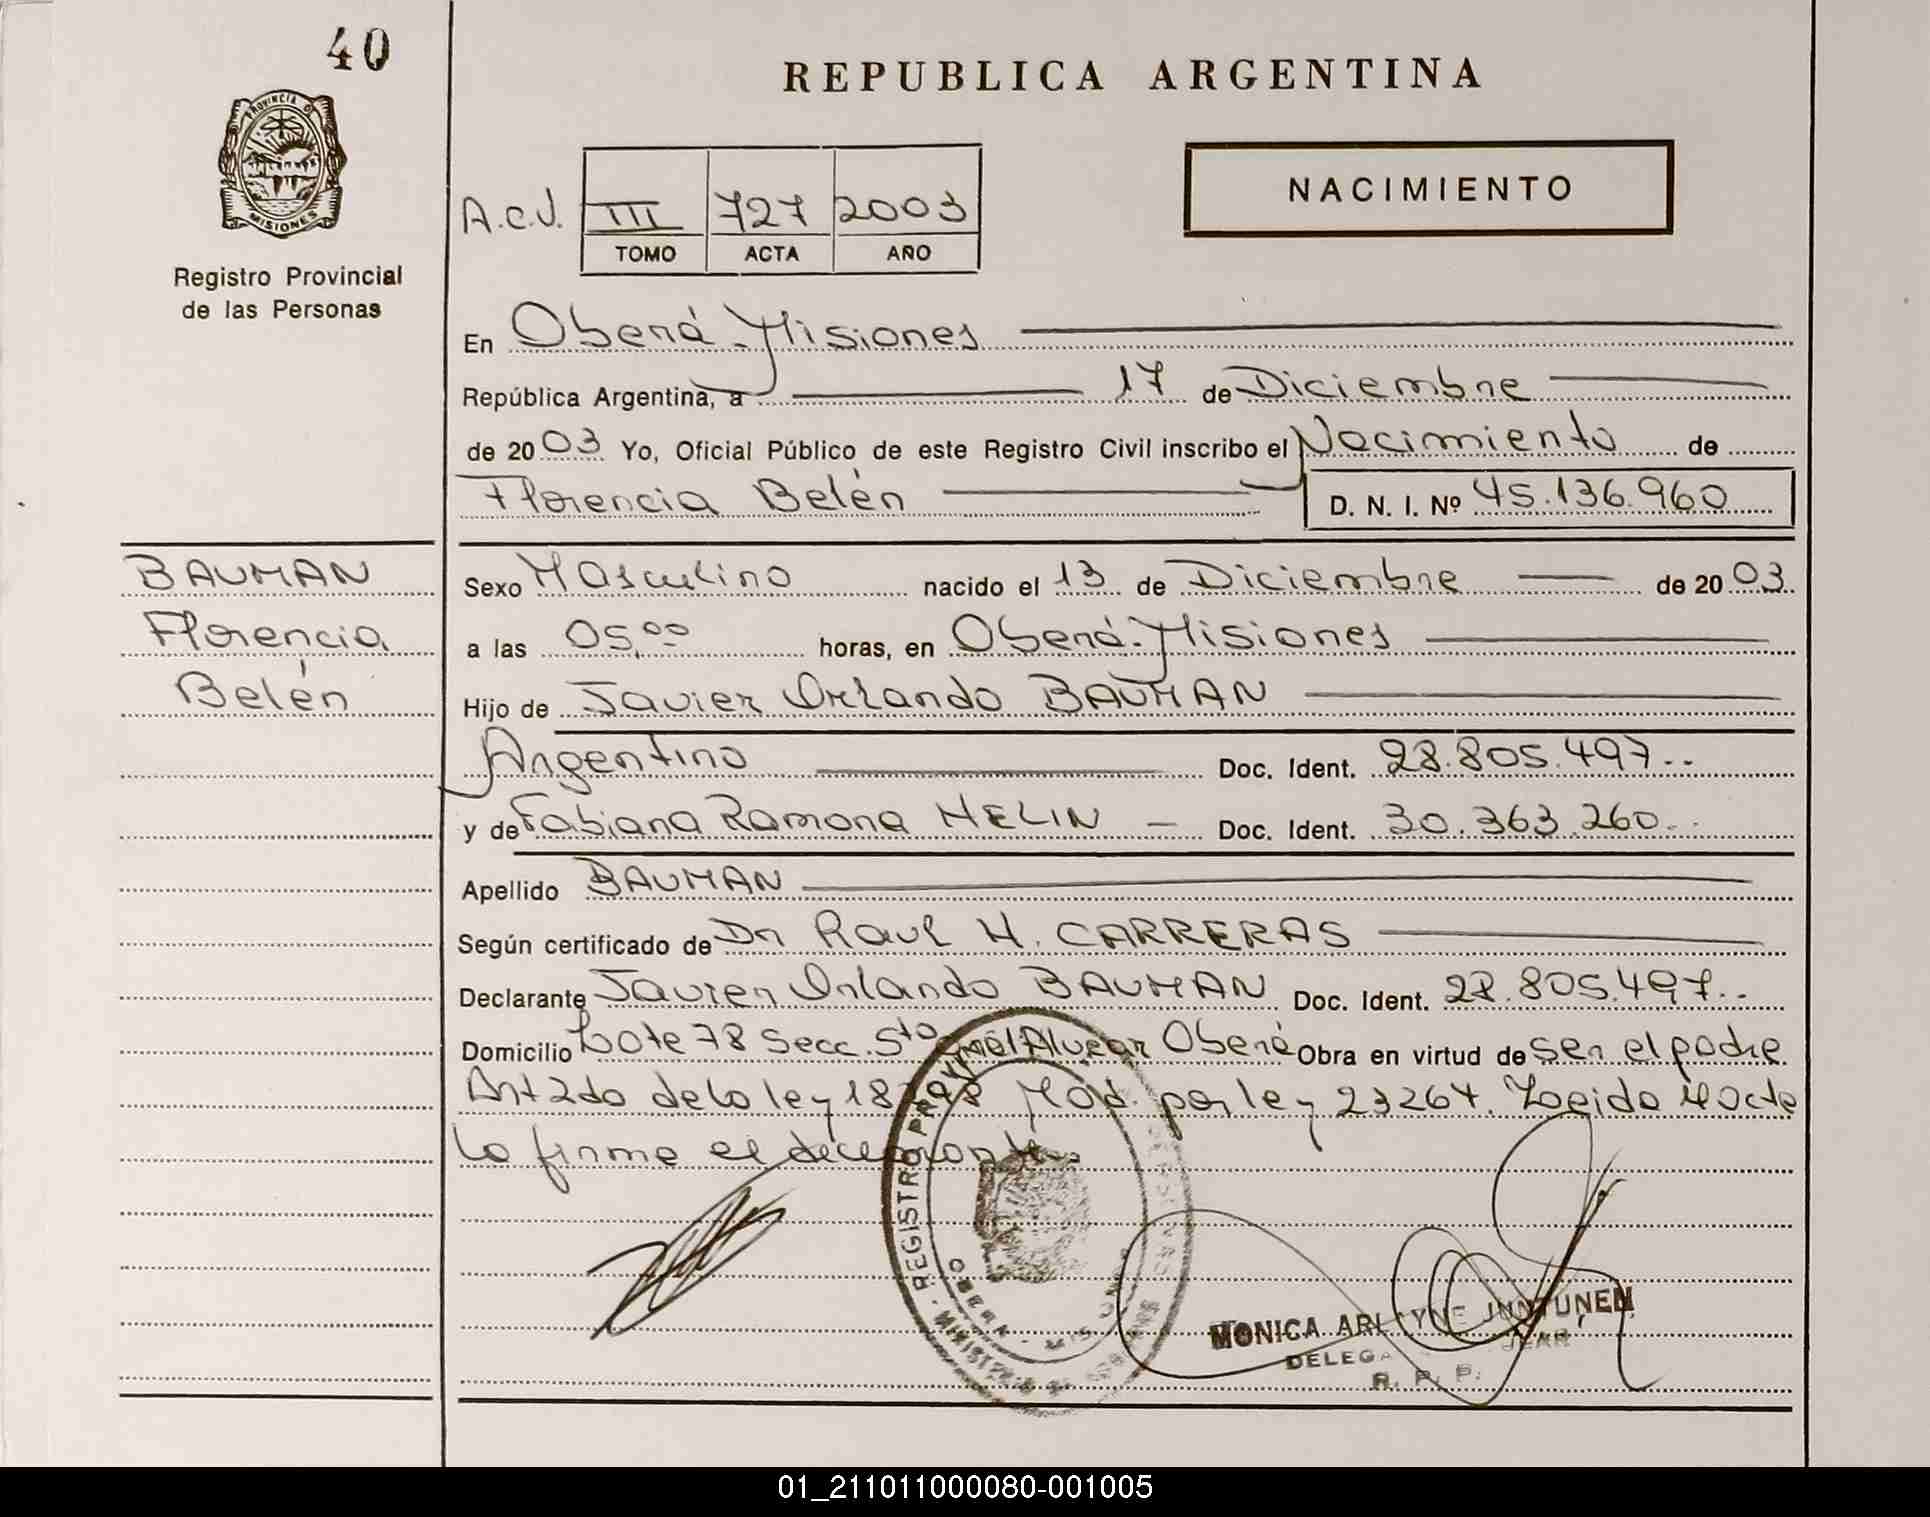 40
REPUBLICA ARGENTINA
PROVINCIA DE
MISIONES
Registro Provincial
de las Personas
NACIMIENTO
A.c.J. III 727 2003
TOMO ACTA AÑO
En Oberá-Misiones
República Argentina, a 17 de Diciembre
de 2003 Yo, Oficial Público de este Registro Civil inscribo el Nacimiento de
Florencia Belén D. N. I. Nº 45.136.960
BAUMAN
Florencia
Belén
Sexo Masculino nacido el 13 de Diciembre de 2003
a las 05,00 horas, en Oberá-Misiones
Hijo de Javier Orlando BAUMAN
Argentino Doc. Ident. 28.805.497
y de Fabiana Ramona MELIN Doc. Ident. 30.363.260
Apellido BAUMAN
Según certificado de Dr Raul H. CARRERAS
Declarante Javier Orlando BAUMAN Doc. Ident. 28.805.497
Domicilio Lote 78 Secc. 5ta Alvear Oberá Obra en virtud de ser el padre
Art 2do de la ley 18 Mod. por ley 23264. Leida Acta
la firma el declarante
REGISTRO PROV
OBERA - MISIONES
MONICA ARL YNE JUNTUNEN
DELEGA
R. P. P.
01_211011000080-001005